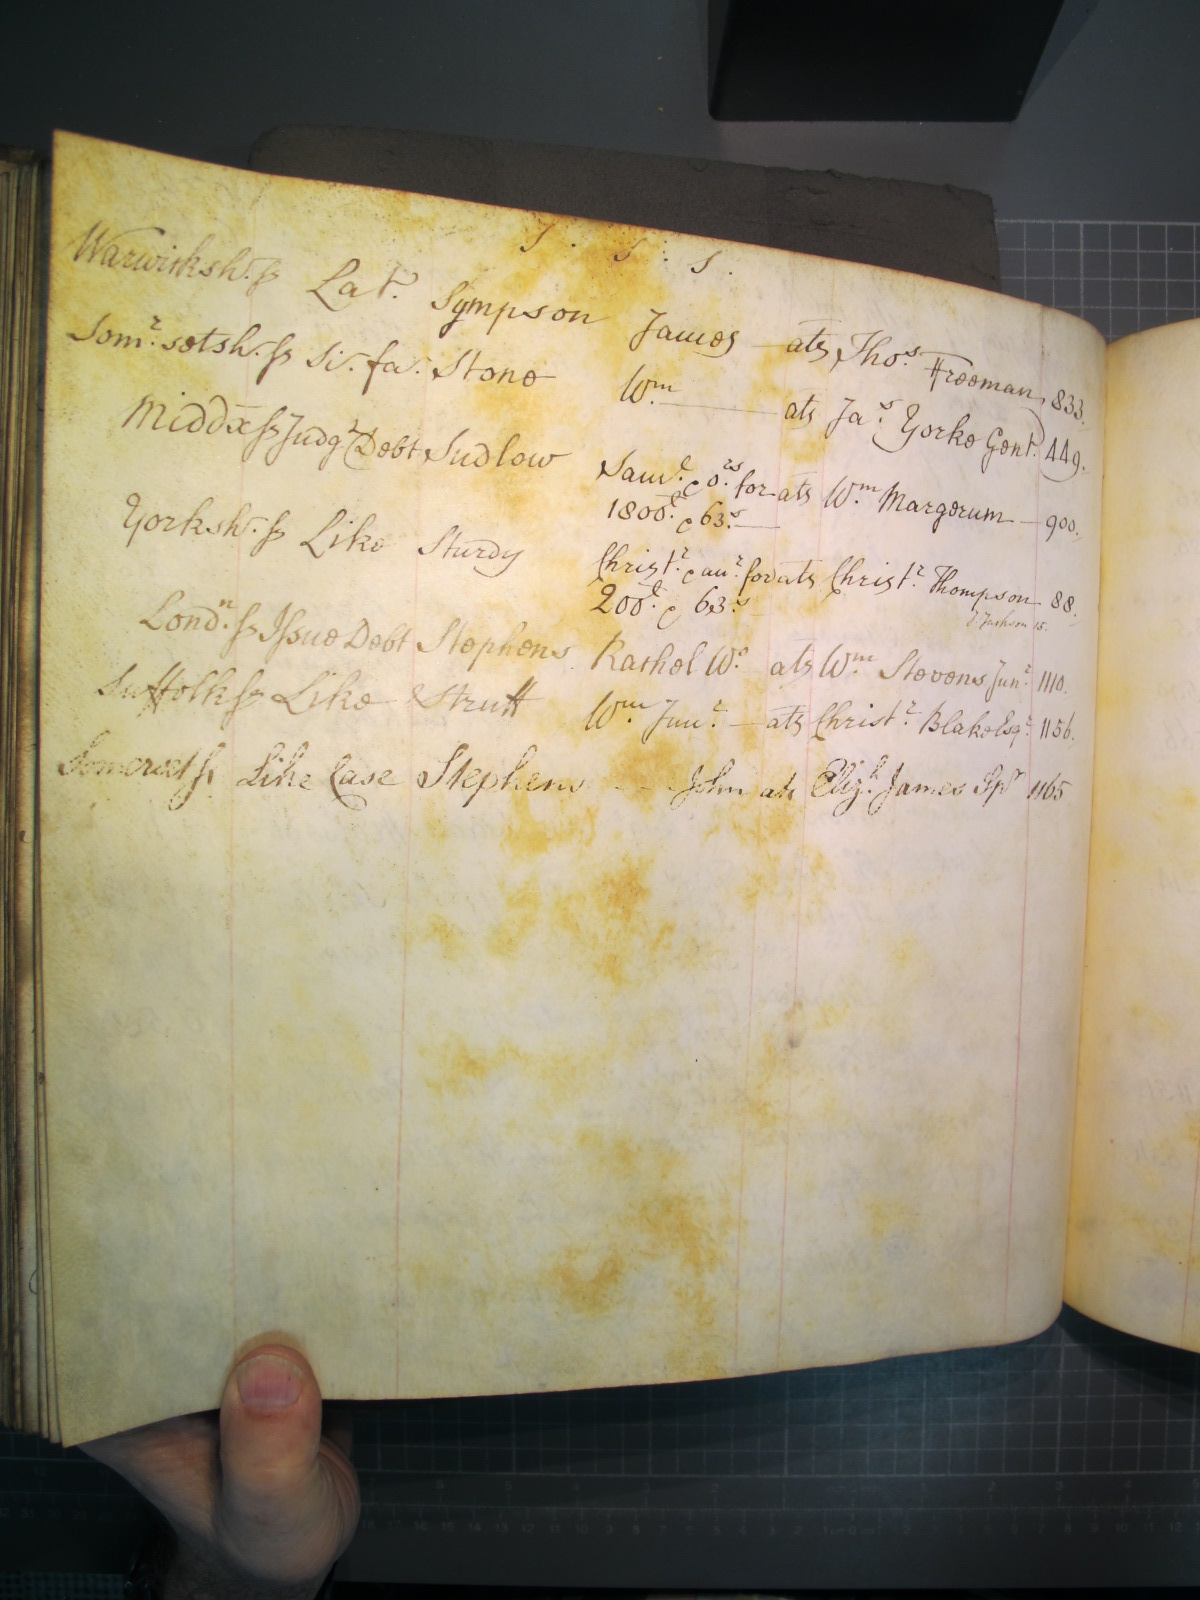 S. S. S.
Warwicksh.r ss Lat. Sympson James ats Tho.s Freeman 833.
Som.rsetsh.r ss Sci. fa. Stone W.m ats Ja.s Yorke Gent. 449.
Middx ss Judg.t Debt Sudlow Sam.l & o.rs for ats W.m Margerum 900.
1800.£ & 63.s
Yorksh.r ss Like Sturdy Christ.r & an.r for ats Christ.r Thompson 88.
200.£ & 63.s
J Jackson 15.
Lond.n ss Issue Debt Stephens Rachel W.o ats W.m Stevens Jun.r 1110.
Suffolk ss Like Strutt W.m Jun.r ats Christ.r Blake Esq.r 1156.
Somerset ss Like Case Stephens John ats Eliz.h James Sp.r 1165